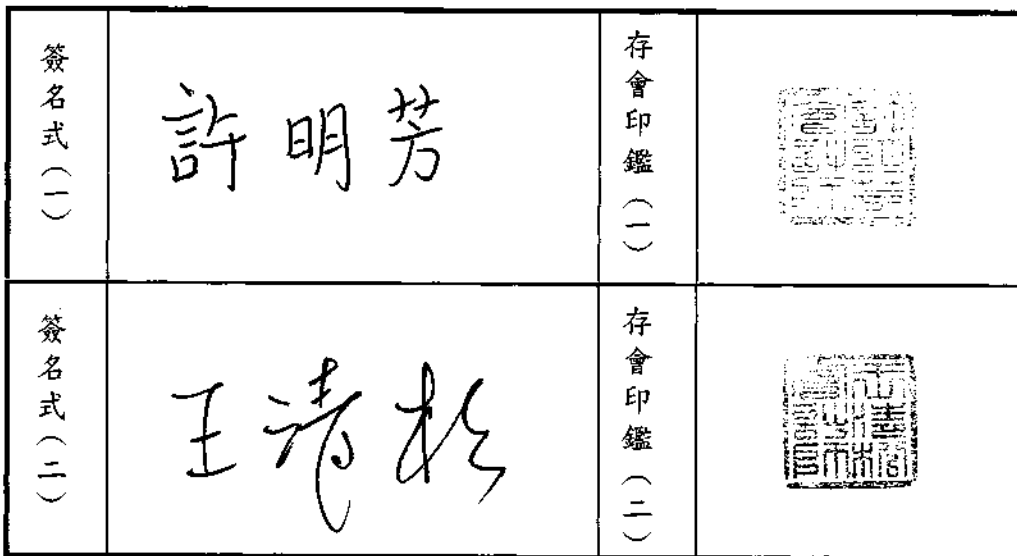 簽名式(一)
許明芳
存會印鑑(一)
簽名式(二)
王清松
存會印鑑(二)